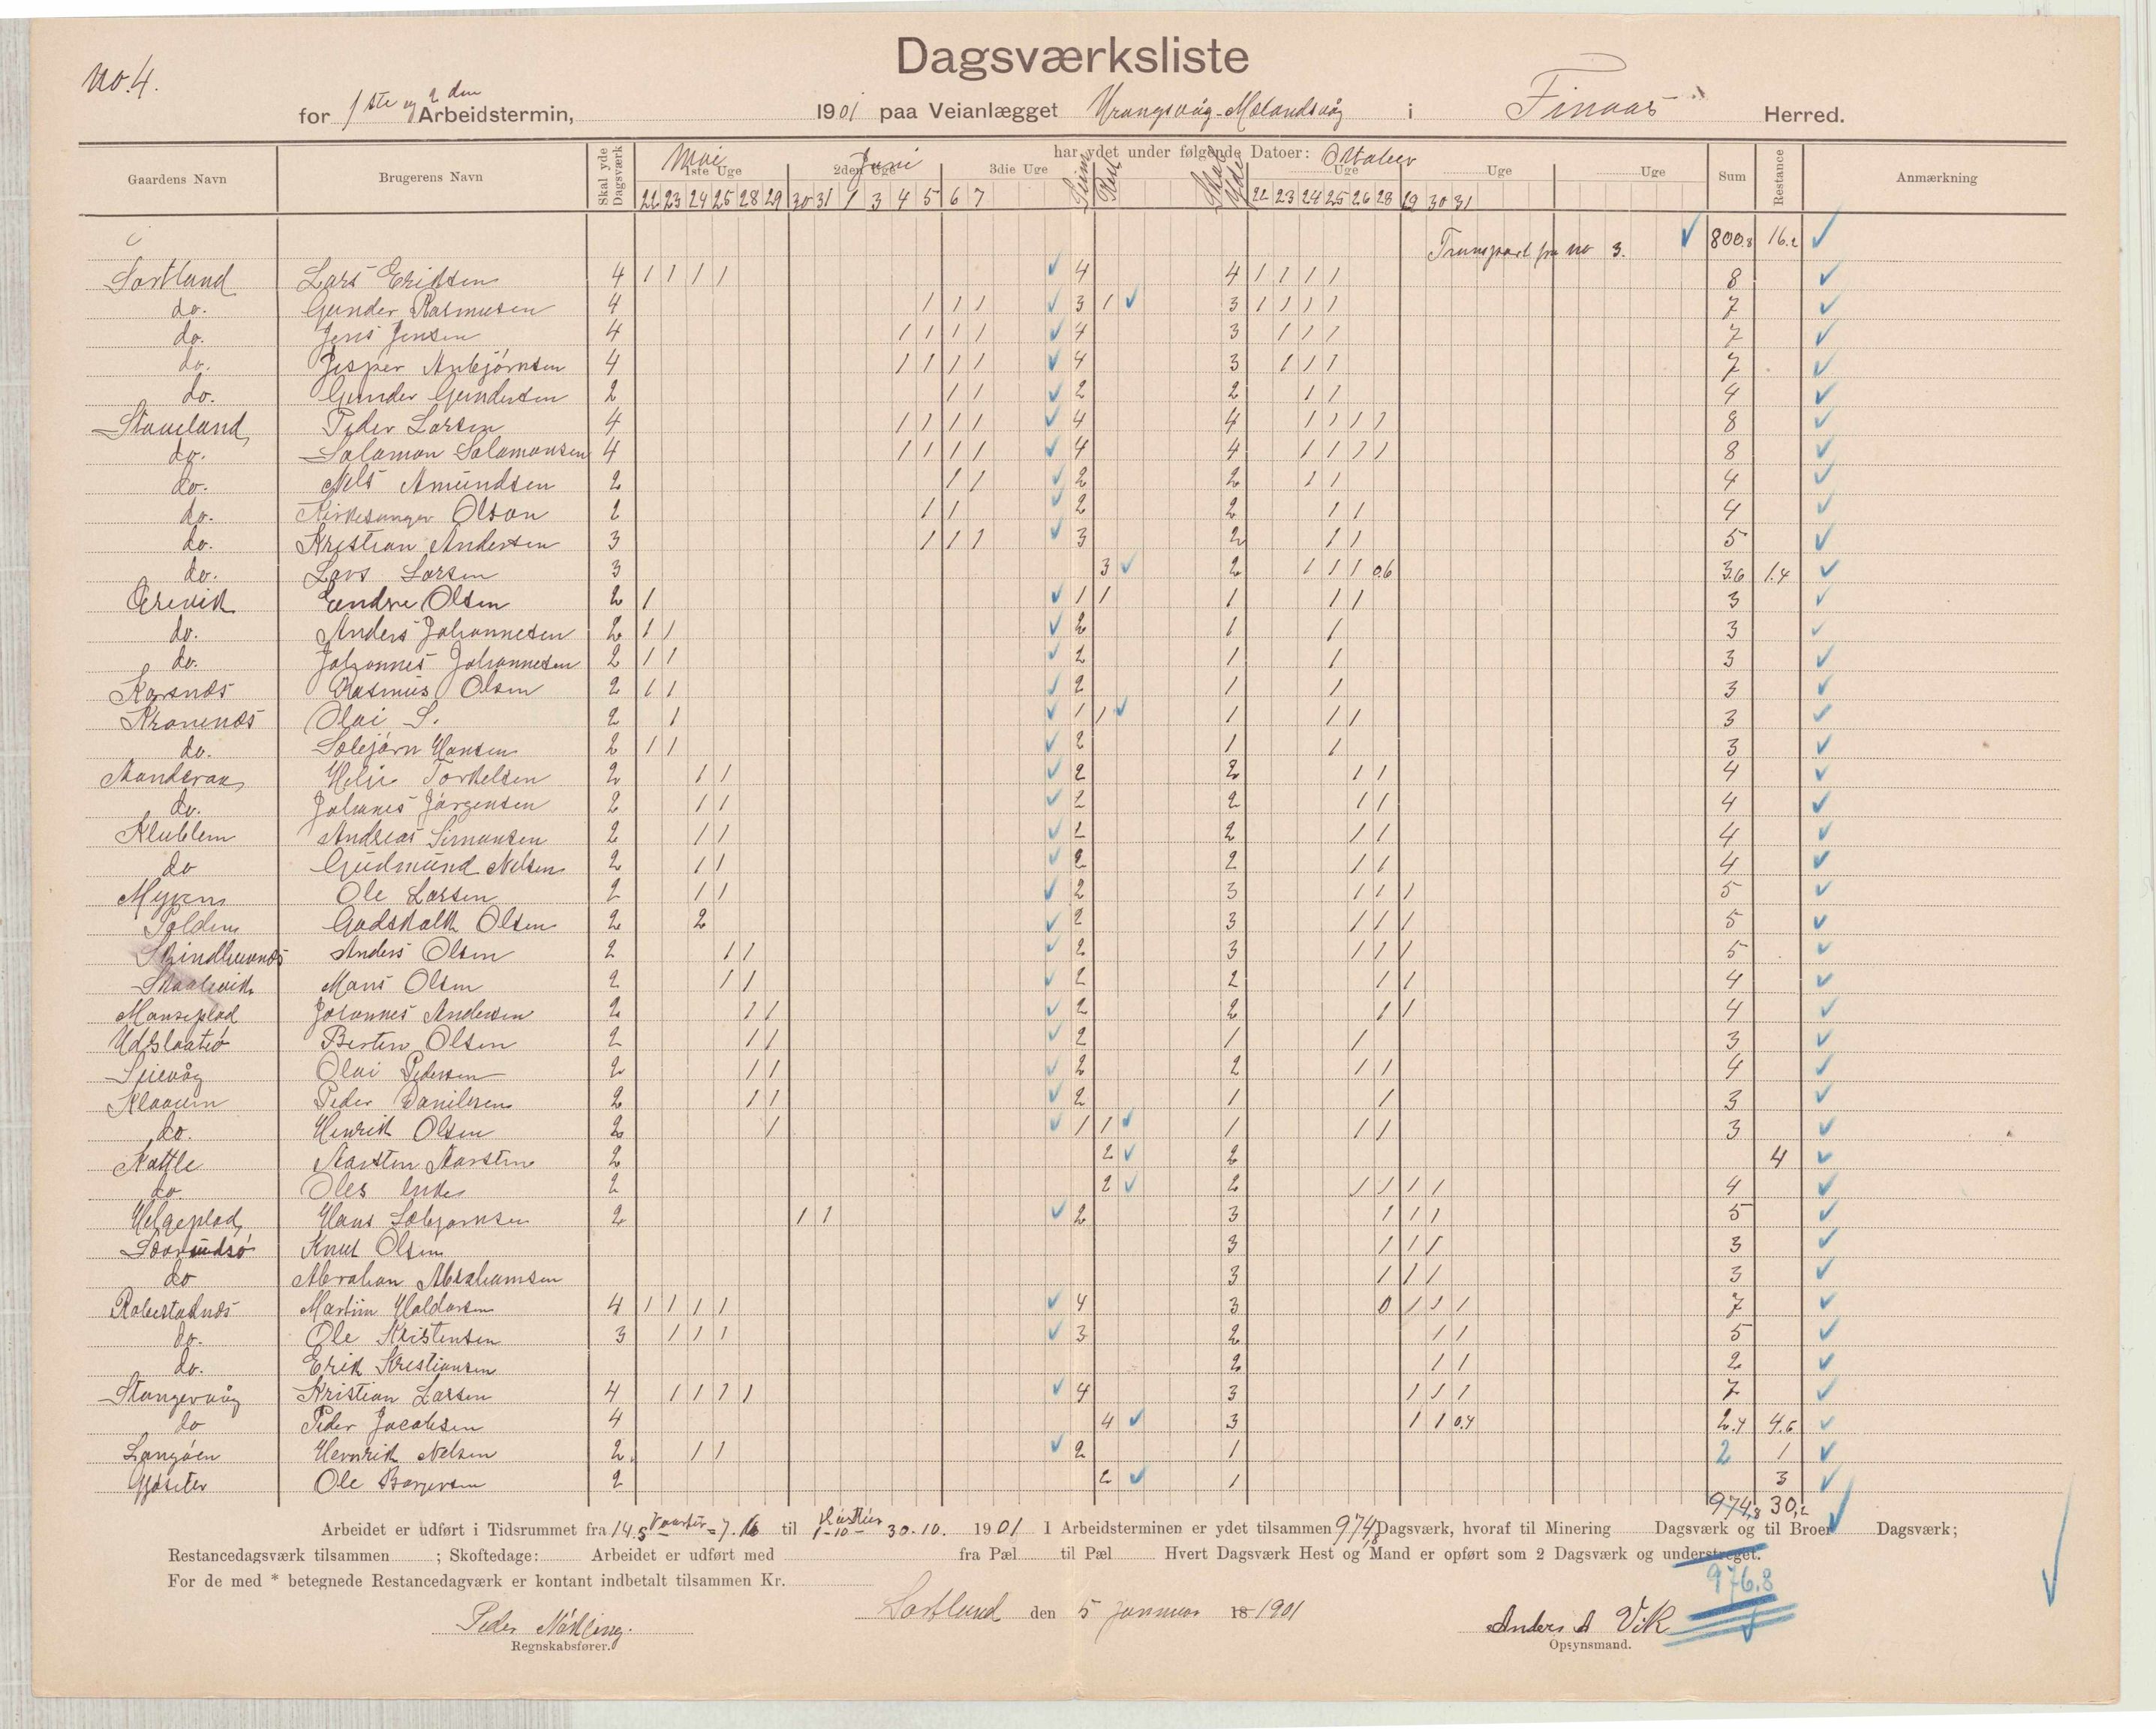 No. 4.
Dagsværksliste
for 1ste og 2den Arbeidstermin, 1901 paa Veianlægget Urangsvåg-Mælandsvåg i Finaas Herred.
Gaardens Navn Brugerens Navn Skal yde Dagsværk har ydet under følgende Datoer: Sum Restance Anmærkning
Mai 1ste Uge 2den Uge Juni 3die Uge Sum Rest Skal Yde October Uge Uge Uge
22 23 24 25 28 29 30 31 1 3 4 5 6 7 22 23 24 25 26 28 29 30 31
Transport fra no 3. 800.8 16.2
Sortland Lars Eriksen 4 1 1 1 1 4 4 1 1 1 1 8
do. Gunder Rasmusen 4 1 1 1 3 1 3 1 1 1 1 7
do. Jens Jensen 4 1 1 1 1 4 3 1 1 1 7
do. Jesper Anbjørnsen 4 1 1 1 1 4 3 1 1 1 7
do. Gunder Gundersen 2 1 1 2 2 1 1 4
Staveland Peder Larsen 4 1 1 1 1 4 4 1 1 1 1 8
do. Salamon Salamonsen 4 1 1 1 1 4 4 1 1 1 1 8
do. Nels Amundsen 2 1 1 2 2 1 1 4
do. Kirkesanger Olson 2 1 1 2 2 1 1 4
do. Kristian Andersen 3 1 1 1 3 2 1 1 5
do. Lars Larsen 3 3 2 1 1 1 0.6 3.6 1.4
Grevik Endre Olsen 2 1 1 1 1 1 1 3
do. Anders Johannesen 2 1 1 2 1 1 3
do. Johannes Johannesen 2 1 1 2 1 1 3
Korsnæs Rasmus Olsen 2 1 1 2 1 1 3
Kronenæs Olai S. 2 1 1 1 1 1 1 3
do. Solbjørn Hansen 2 1 1 2 1 1 3
Helje Torkelsen 2 1 1 2 2 1 1 4
do. Johanes Jørgensen 2 1 1 2 2 1 1 4
Klublem Andreas Simonsen 2 1 1 2 2 1 1 4
do Gudmund Nelsen 2 1 1 2 2 1 1 4
Myren Ole Larsen 2 1 1 2 3 1 1 1 5
Polden Godskalk Olsen 2 2 2 3 1 1 1 5
Anders Olsen 2 1 1 2 3 1 1 1 5
Skaalevik Mons Olsen 2 1 1 2 2 1 1 4
Monseplad Johannes Andersen 2 1 1 2 2 1 1 4
Udslaatiø Berten Olsen 2 1 1 2 1 1 3
Olai Pedersen 2 1 1 2 2 1 1 4
Peder Danilsen 2 1 1 2 1 1 3
do. Henrik Olsen 2 1 1 1 1 1 1 3
Kattle Karsten Karsten 2 2 2 4
do Oles Enke 2 2 2 1 1 1 1 4
Helgeplad Hans Solbjørnsen 2 1 1 2 3 1 1 1 5
Knut Olsen 3 1 1 1 3
do Abraham Abrahamsen 3 1 1 1 3
Martin Haldorsen 4 1 1 1 1 4 3 0 1 1 1 7
do. Ole Kristensen 3 1 1 1 3 2 1 1 5
do. Erik Kristiansen 2 1 1 2
Stangevåg Kristian Larsen 4 1 1 1 1 4 3 1 1 1 7
do Peder Jacobsen 4 4 3 1 1 0.4 2.4 4.6
Langøen Henrik Nelsen 2 1 1 2 1 2 1
Ole 2 2 1 3
974,8 30,2
Arbeidet er udført i Tidsrummet fra 14.5 Vaaren = 7.6 til Høsten 1-10- 30-10. 1901 I Arbeidsterminen er ydet tilsammen 974,8 Dagsværk, hvoraf til Minering Dagsværk og til Broer Dagsværk;
Restancedagsværk tilsammen ; Skoftedage: Arbeidet er udført med fra Pæl til Pæl Hvert Dagsværk Hest og Mand er opført som 2 Dagsværk og understreget.
For de med * betegnede Restancedagværk er kontant indbetalt tilsammen Kr.
976.8
Sortland den 5 Januar 18 1901
Peder Nøkling. Anders A Vik
Regnskabsfører. Opsynsmand.